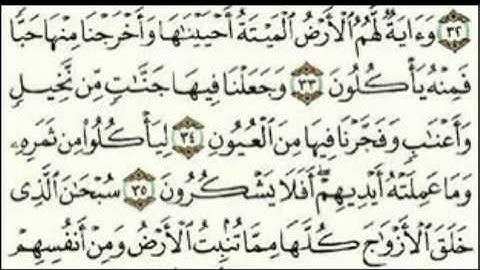 ٣٢ وَءَايَةٌ لَّهُمُ ٱلْأَرْضُ ٱلْمَيْتَةُ أَحْيَيْنَٰهَا وَأَخْرَجْنَا مِنْهَا حَبًّا
فَمِنْهُ يَأْكُلُونَ ٣٣ وَجَعَلْنَا فِيهَا جَنَّٰتٍ مِّن نَّخِيلٍ
وَأَعْنَٰبٍ وَفَجَّرْنَا فِيهَا مِنَ ٱلْعُيُونِ ٣٤ لِيَأْكُلُوا۟ مِن ثَمَرِهِۦ
وَمَا عَمِلَتْهُ أَيْدِيهِمْ ۖ أَفَلَا يَشْكُرُونَ ٣٥ سُبْحَٰنَ ٱلَّذِى
خَلَقَ ٱلْأَزْوَٰجَ كُلَّهَا مِمَّا تُنۢبِتُ ٱلْأَرْضُ وَمِنْ أَنفُسِهِمْ